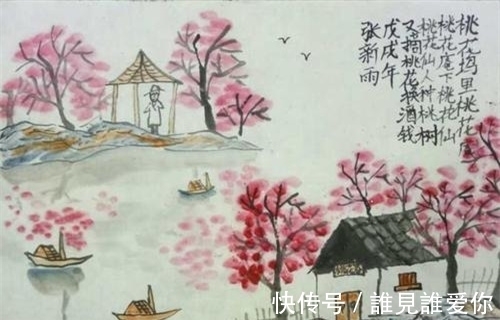 桃花坞里桃花庵
桃花庵下桃花仙
桃花仙人种桃树
又摘桃花换酒钱
戊戌年
张新雨
快传号 / 誰見誰爱你